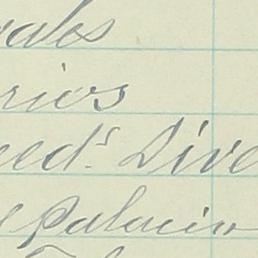 rales
rios
eeds Dive
l Palacio